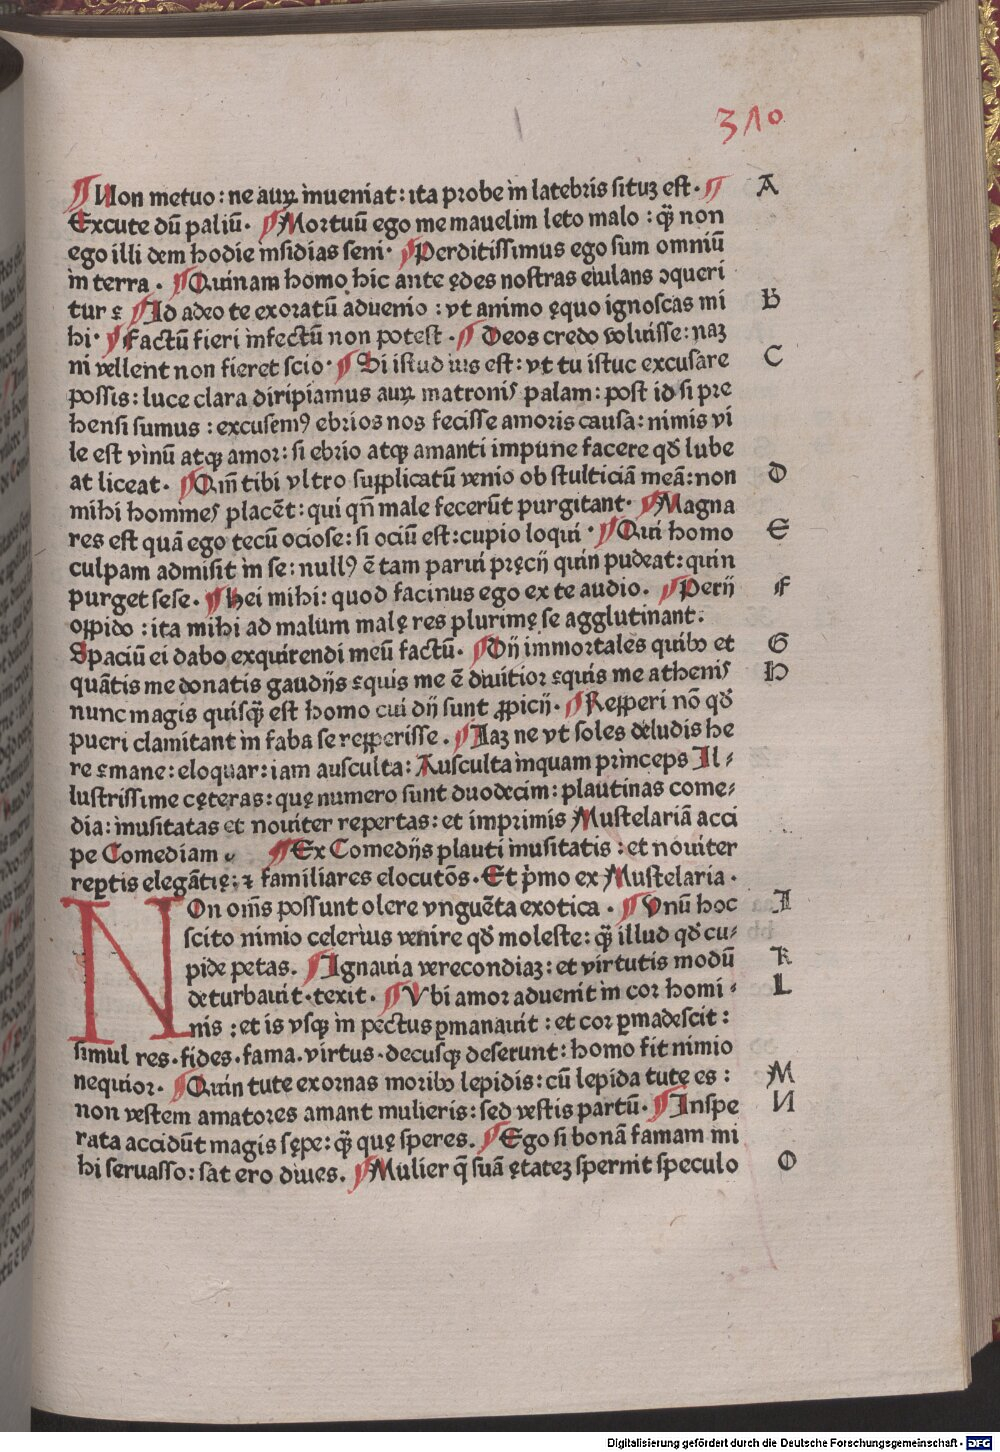 310
¶ Non metuo: ne auꝝ inueniat: ita probe in latebris situꝫ est. ¶ A
Excute dū paliū. ¶ Mortuū ego me mauelim leto malo: qͣꝫ non
ego illi dem hodie insidias seni. ¶ Perditissimus ego sum omniū
in terra. ¶ Quinam homo hic ante ędes nostras eiulans ↄqueri
tur ⁊ ¶ Id adeo te exoratū aduenio: vt animo ęquo ignoscas mi B
hi. ¶ Factū fieri infectū non potest. ¶ Deos credo voluisse: naꝫ
ni vellent non fieret scio. ¶ Si istud ius est: vt tu istuc excusare C
possis: luce clara diripiamus auꝝ matronis palam: post id si pre
hensi sumus: excusemꝰ ebrios nos fecisse amoris causa: nimis vi
le est vinū atqꝫ amor: si ebrio atqꝫ amanti impune facere qď lube
at liceat. ¶ Qm̄ tibi vltro supplicatū venio ob stulticiā meā: non D
mihi homines placēt: qui qn̄ male fecerūt purgitant. ¶ Magna
res est quā ego tecū ociose: si ociū est: cupio loqui. ¶ Qui homo E
culpam admisit in se: nullꝰ ē tam parui pręcij quin pudeat: quin
purget sese. ¶ Hei mihi: quod facinus ego ex te audio. ¶ Perij F
oppido: ita mihi ad malum malę res plurimę se agglutinant.
Spaciū ei dabo exquirendi meū factū. ¶ Dij immortales quibꝰ et G
quātis me donatis gaudijs ⁊ quis me ē diuitior ⁊ quis me athenis H
nunc magis quisqͣꝫ est homo cui dij sunt ꝓpicij. ¶ Repperi nō qď
pueri clamitant in faba se repperisse. ¶ Iaꝫ ne vt soles deludis he
re ⁊ mane: eloquar: iam ausculta: Ausculta inquam princeps Il-
lustrissime cęteras: quę numero sunt duodecim: plautinas come-
dia: inusitatas et nouiter repertas: et imprimis Mustelariā acci
pe Comediam. ¶ Ex Comedijs plauti inusitatis: et nouiter
reꝑtis elegātię: ⁊ familiares elocutōs. Et pͥmo ex Mustelaria.
NOn om̄s possunt olere vnguēta exotica. ¶ Vnū hoc I
scito nimio celerius venire qď moleste: qͣꝫ illud qď cu-
pide petas. ¶ Ignauia verecondiaꝫ: et virtutis modū K
deturbauit. texit. ¶ Vbi amor aduenit in cor homi- L
nis: et is vsqꝫ in pectus ꝑmanauit: et cor ꝑmadescit:
simul res. fides. fama. virtus. decusqꝫ deserunt: homo fit nimio
nequior. ¶ Quin tute exornas moribꝰ lepidis: cū lepida tute es: M
non vestem amatores amant mulieris: sed vestis partū. ¶ Inspe N
rata accidūt magis sępe: qͣꝫ quę speres. ¶ Ego si bonā famam mi
hi seruasso: sat ero diues. ¶ Mulier q̄ suā ętateꝫ spernit speculo O
Digitalisierung gefördert durch die Deutsche Forschungsgemeinschaft - DFG